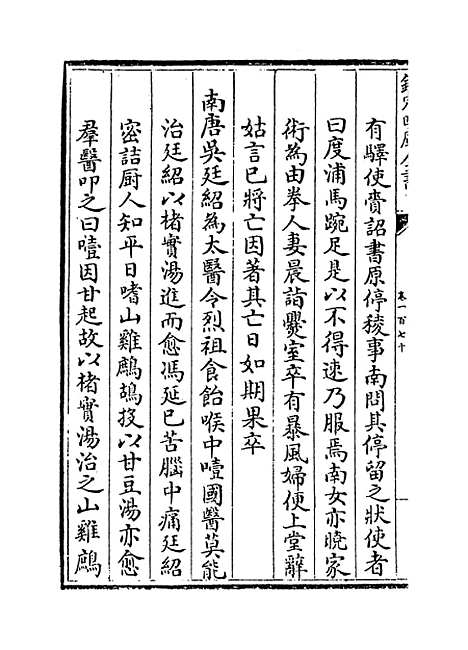 欽定四庫全書
卷一百七十
有驛使賫詔書原停稜事南問其停留之狀使者
曰度浦馬踠足是以不得速乃服焉南女亦曉家
術為由拳人妻晨詣爨室卒有暴風婦便上堂辭
姑言已將亡因著其亡日如期果卒
南唐吳廷紹為太醫令烈祖食飴喉中噎國醫莫能
治廷紹以楮實湯進而愈馮延巳苦腦中痛廷紹
密詰厨人知平日嗜山雞鷓鴣投以甘豆湯亦愈
羣醫叩之曰噎因甘起故以楮實湯治之山雞鷓